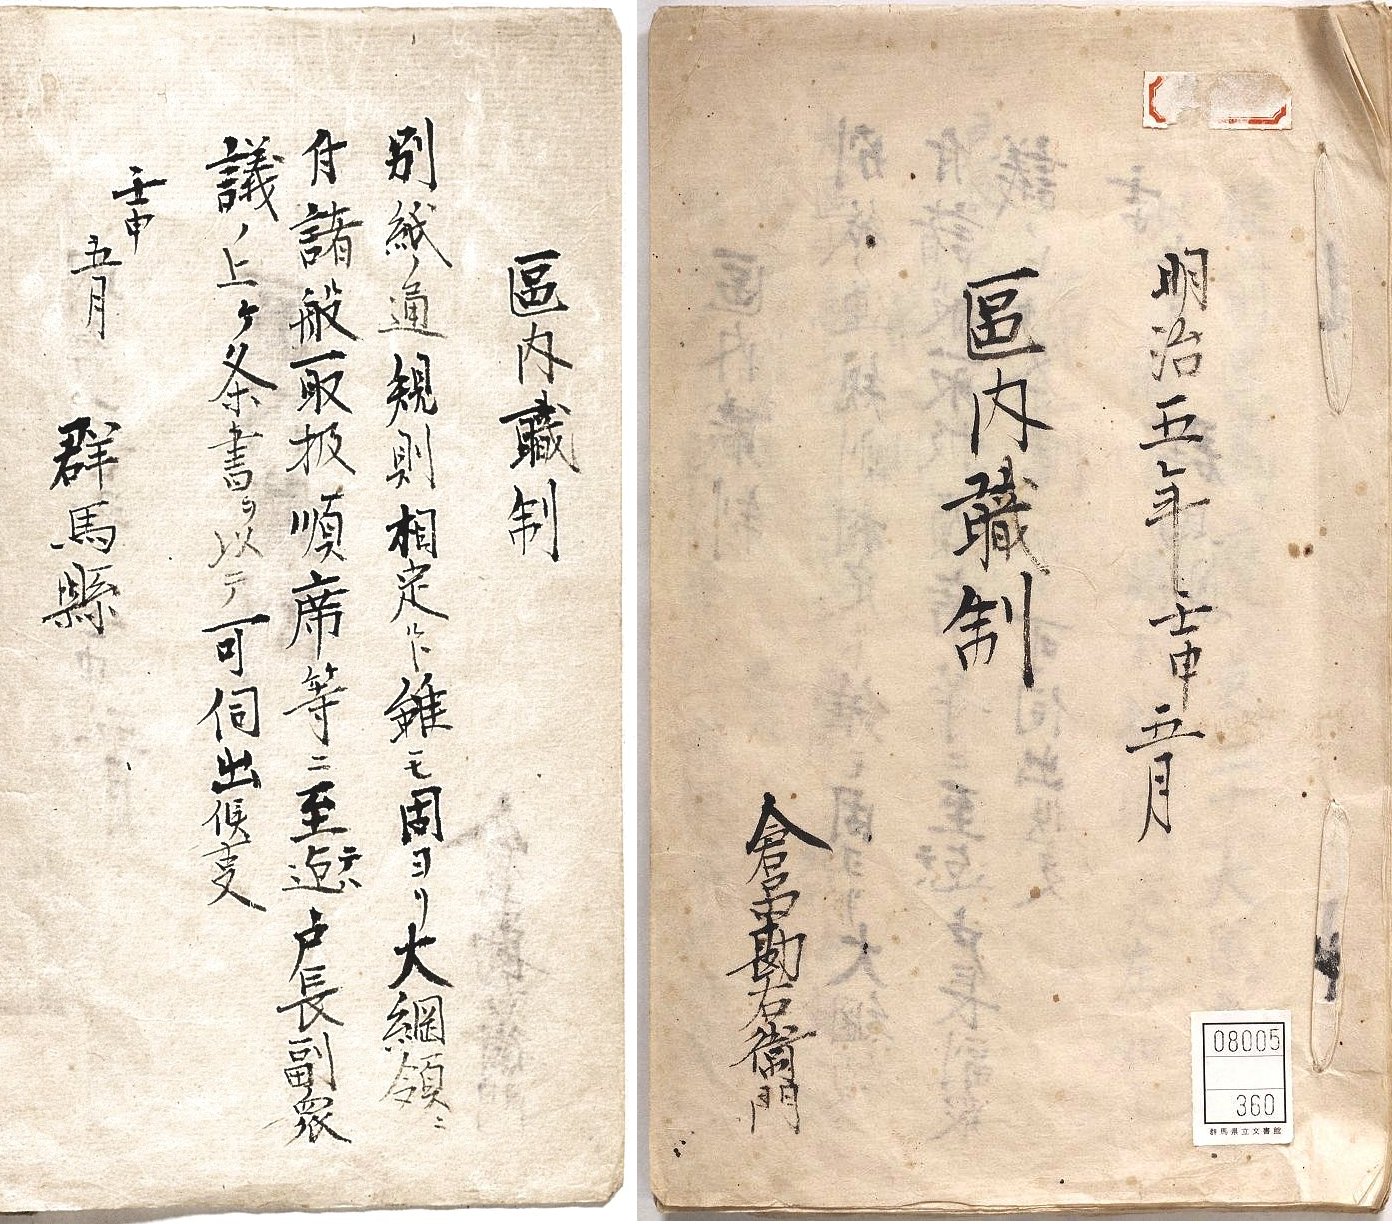 明治五年壬申五月
區内職制
倉品勘右衛門
08005
360
群馬県立文書館
區内職制
別紙ノ通規則相定候ト雖モ固ヨリ大綱領ニ
付諸般取扱順席等ニ至迠テハ戸長副衆
議ノ上ケ条書ヲ以テ可伺出候事
壬申
五月
群馬縣